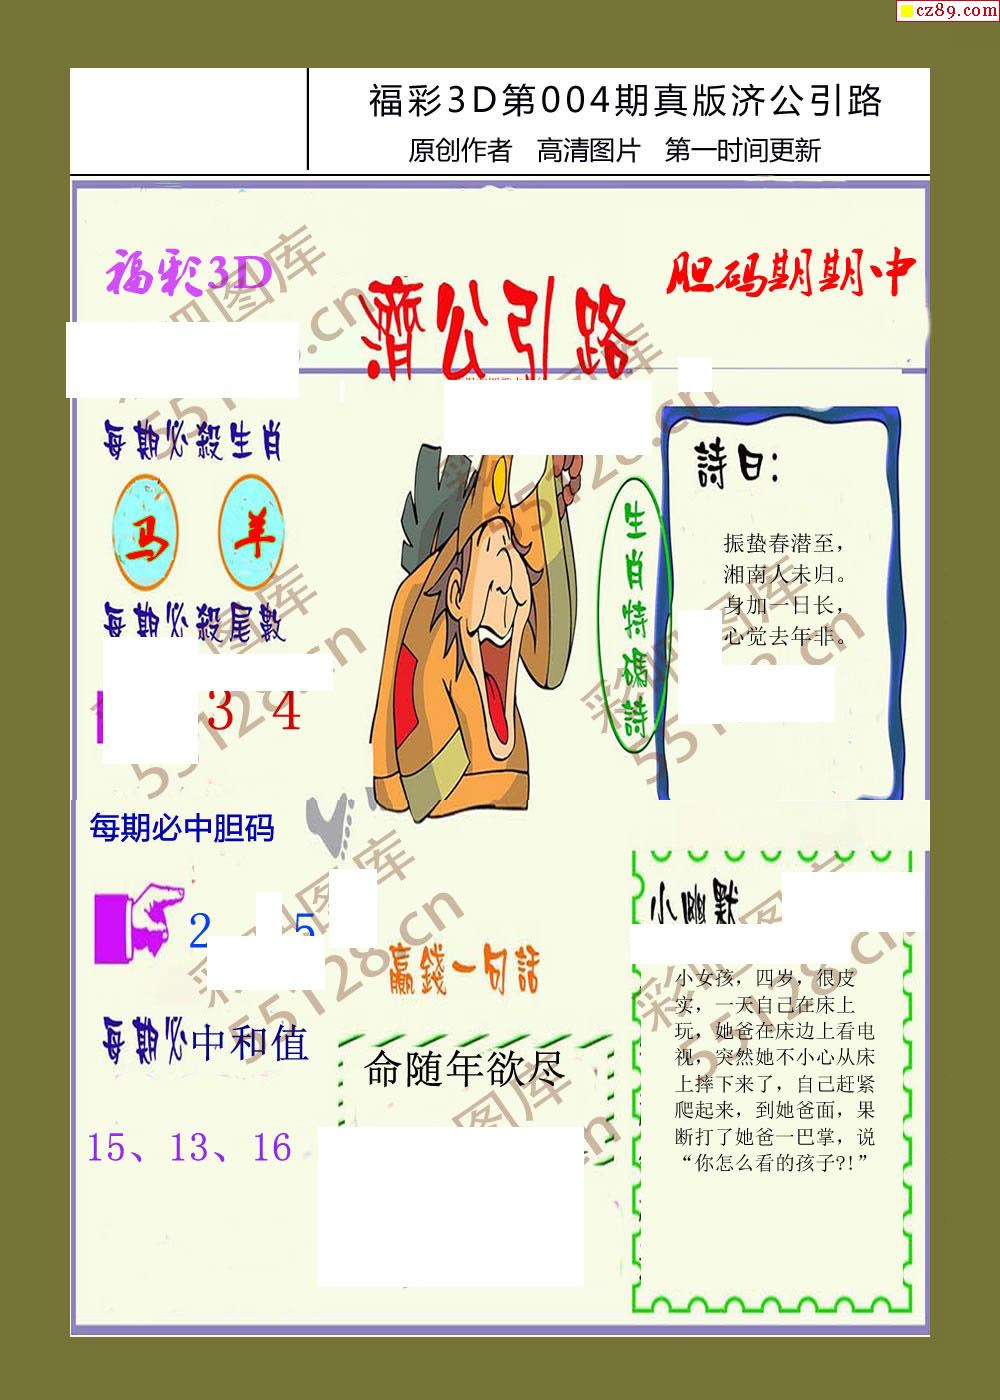 cz89.com
福彩3D第004期真版济公引路
原创作者 高清图片 第一时间更新
福彩3D
濟公引路
胆码期期中
每期必殺生肖
马 羊
每期必殺尾數
3 4
每期必中胆码
2 5
每期必中和值
15、13、16
生肖特碼詩
詩曰：
振蛰春潜至，
湘南人未归。
身加一日长，
心觉去年非。
贏錢一句話
命随年欲尽
小幽默
小女孩，四岁，很皮
实，一天自己在床上
玩，她爸在床边上看电
视，突然她不小心从床
上摔下来了，自己赶紧
爬起来，到她爸面，果
断打了她爸一巴掌，说
“你怎么看的孩子?!”
彩吧图库
55128.cn
彩吧图库
55128.cn
彩吧图库
55128.cn